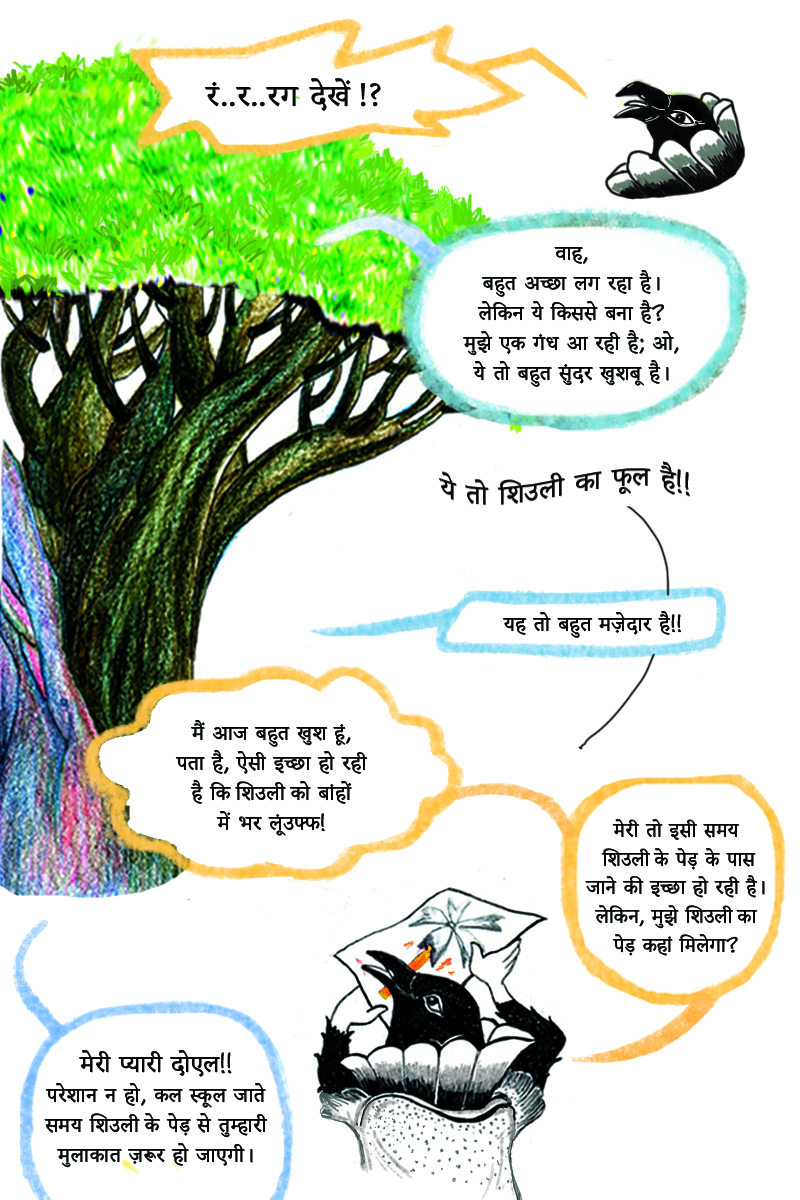 रं..र..रग देखें !?
वाह,
बहुत अच्छा लग रहा है।
लेकिन ये किससे बना है?
मुझे एक गंध आ रही है; ओ,
ये तो बहुत सुंदर खुशबू है।
ये तो शिउली का फूल है!!
यह तो बहुत मज़ेदार है!!
मैं आज बहुत खुश हूं,
पता है, ऐसी इच्छा हो रही
है कि शिउली को बांहों
में भर लूंउफ्फ!
मेरी तो इसी समय
शिउली के पेड़ के पास
जाने की इच्छा हो रही है।
लेकिन, मुझे शिउली का
पेड़ कहां मिलेगा?
मेरी प्यारी दोएल!!
परेशान न हो, कल स्कूल जाते
समय शिउली के पेड़ से तुम्हारी
मुलाकात ज़रूर हो जाएगी।